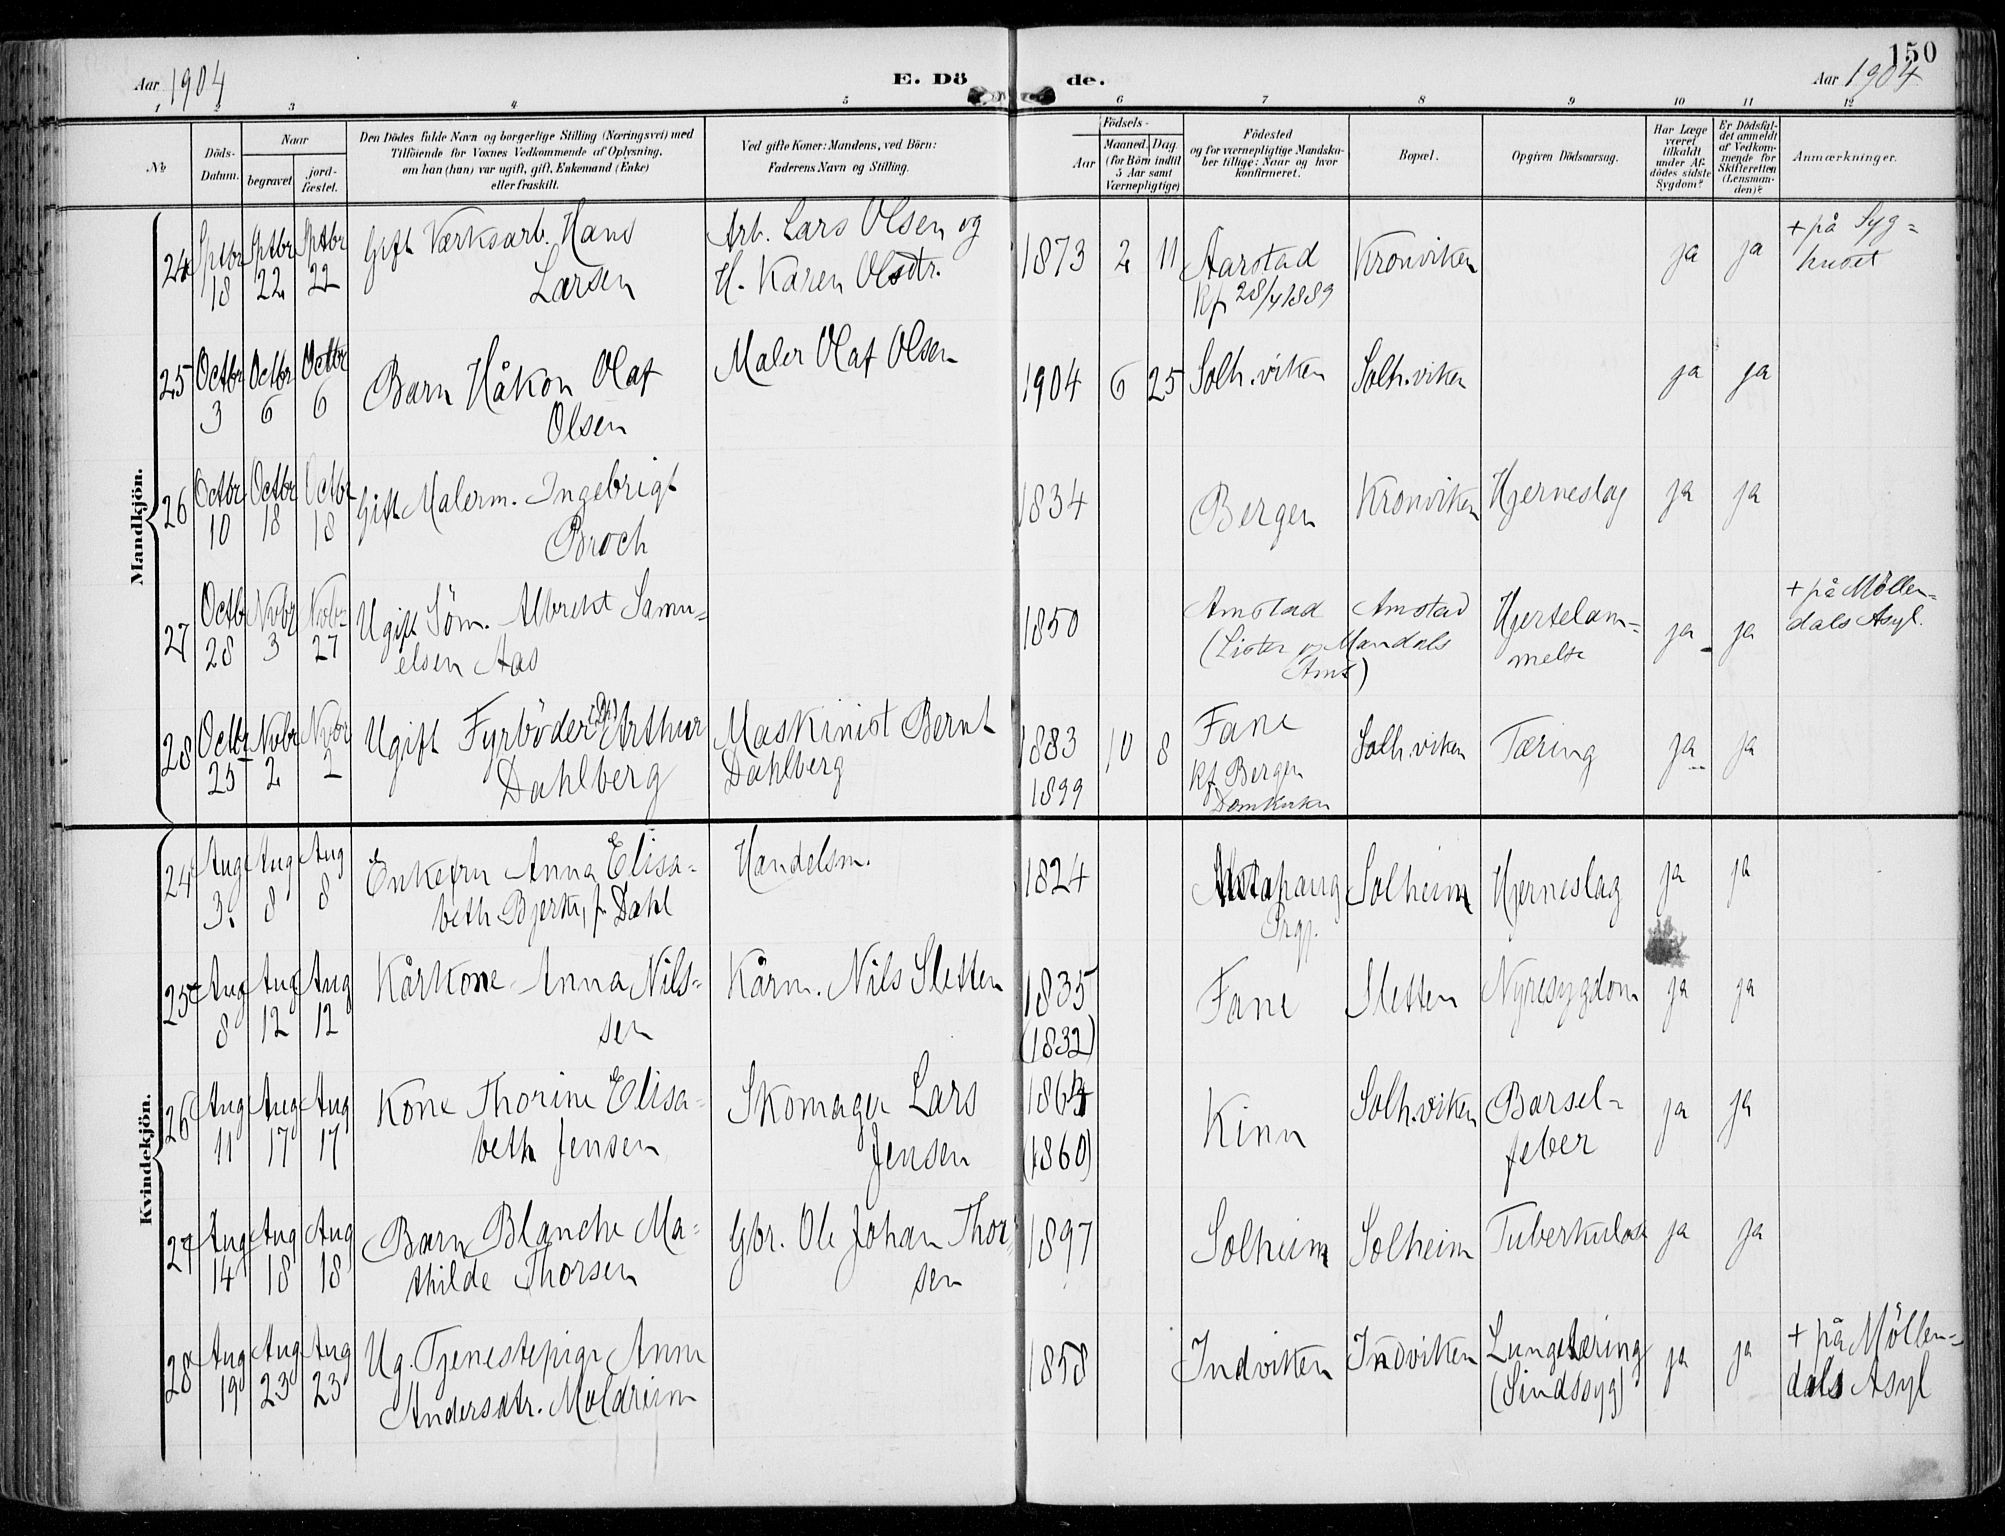 150
Aar 1904
E. Dö
de.
Aar 1904
1 2 3 4 5 6 7 8 9 10 11 12
No
Döds-
Datum.
Naar
begravet
jord-
fæstet.
Den Dödes fulde Navn og borgerlige Stilling (Næringsvei) med
Tilföiende for Voxnes Vedkommende af Oplysning,
om han (hun) var ugift, gift, Enkemand (Enke)
eller fraskilt.
Ved gifte Koner: Mandens, ved Börn:
Faderens Navn og Stilling.
Födsels-
Aar
Maaned. Dag.
(for Börn indtil
5 Aar samt
Værnepligtige)
Födested
og for værnepligtige Mandska-
ber tillige: Naar og hvor
konfirmeret.
Bopæl.
Opgiven Dödsaarsag.
Har Læge
været
tilkaldt
under Af-
dödes sidste
Sygdom?
Er Dödsfal-
det anmeldt
af Vedkom-
mende for
Skifteretten
(Lensman-
den)?
Anmærkninger.
Mandkjön.
24 Sptbr 18 Sptbr 22 Sptbr 22 Gift Værksarb. Hans
Larsen
Arb. Lars Olsen og
H. Karen Olsdtr.
1873 2 11 Aarstad
Kf. 28/4 1889
Kronviken ja ja + på Syg=
huset
25 Octbr 3 Octbr 6 Octbr 6 Barn Håkon Olaf
Olsen
Maler Olaf Olsen
1904 6 25 Solh.viken Solh.viken ja ja
26 Octbr 10 Octbr 18 Octbr 18 Gift Malerm. Ingebrigt
Broch
1834 Bergen Kronviken Hjerneslag ja ja
27 Octb 28 Novbr 3 Novbr 27 Ugift Söm. Albrekt Samu=
elsen Aas
1850 Amstad Amstad
(Lister og Mandals
Amt)
Hjertelam=
melse
ja ja + på Möllen=
dals Asyl.
28 Octbr 25 Nvbr 2 Nvbr 2 Ugift Fyrböder Arthur
Dahlberg
Maskinist Bernt
Dahlberg
1883 10 8 Fane
1899
Kf. Bergen
Domkirke
Solh.viken Tæring ja ja
Kvindekjön.
24 Aug 3. Aug 8 Aug 8 Enkefru Anna Elisa-
beth Bjerke, f. Dahl
Handelsm.
1824
Prgj.
Solheim Hjerneslag ja ja
25 Aug 8 Aug 12 Aug 12 Kårkone Anna Nils-
sen
Kårm. Nils Sletten
1835
(1832)
Fane Sletten Nyresygdom ja ja
26 Aug 11 Aug 17 Aug 17 Kone Thorine Elisa-
beth Jensen
Skomager Lars
Jensen
1864
(1860)
Kinn Solh.viken Barsel-
feber
ja ja
27 Aug 14 Aug 18 Aug 18 Barn Blanche Ma-
thilde Thorsen
Gbr. Ole Johan Thor-
sen
1897 Solheim Solheim Tuberkulose ja ja
28 Aug 19 Aug 23 Aug 23 Ug. Tjenestepige Anna
Andersdtr. Moldreim
1858 Indviken Indviken Lungetæring
(Sindssyg)
ja ja + på Möllen-
dals Asyl